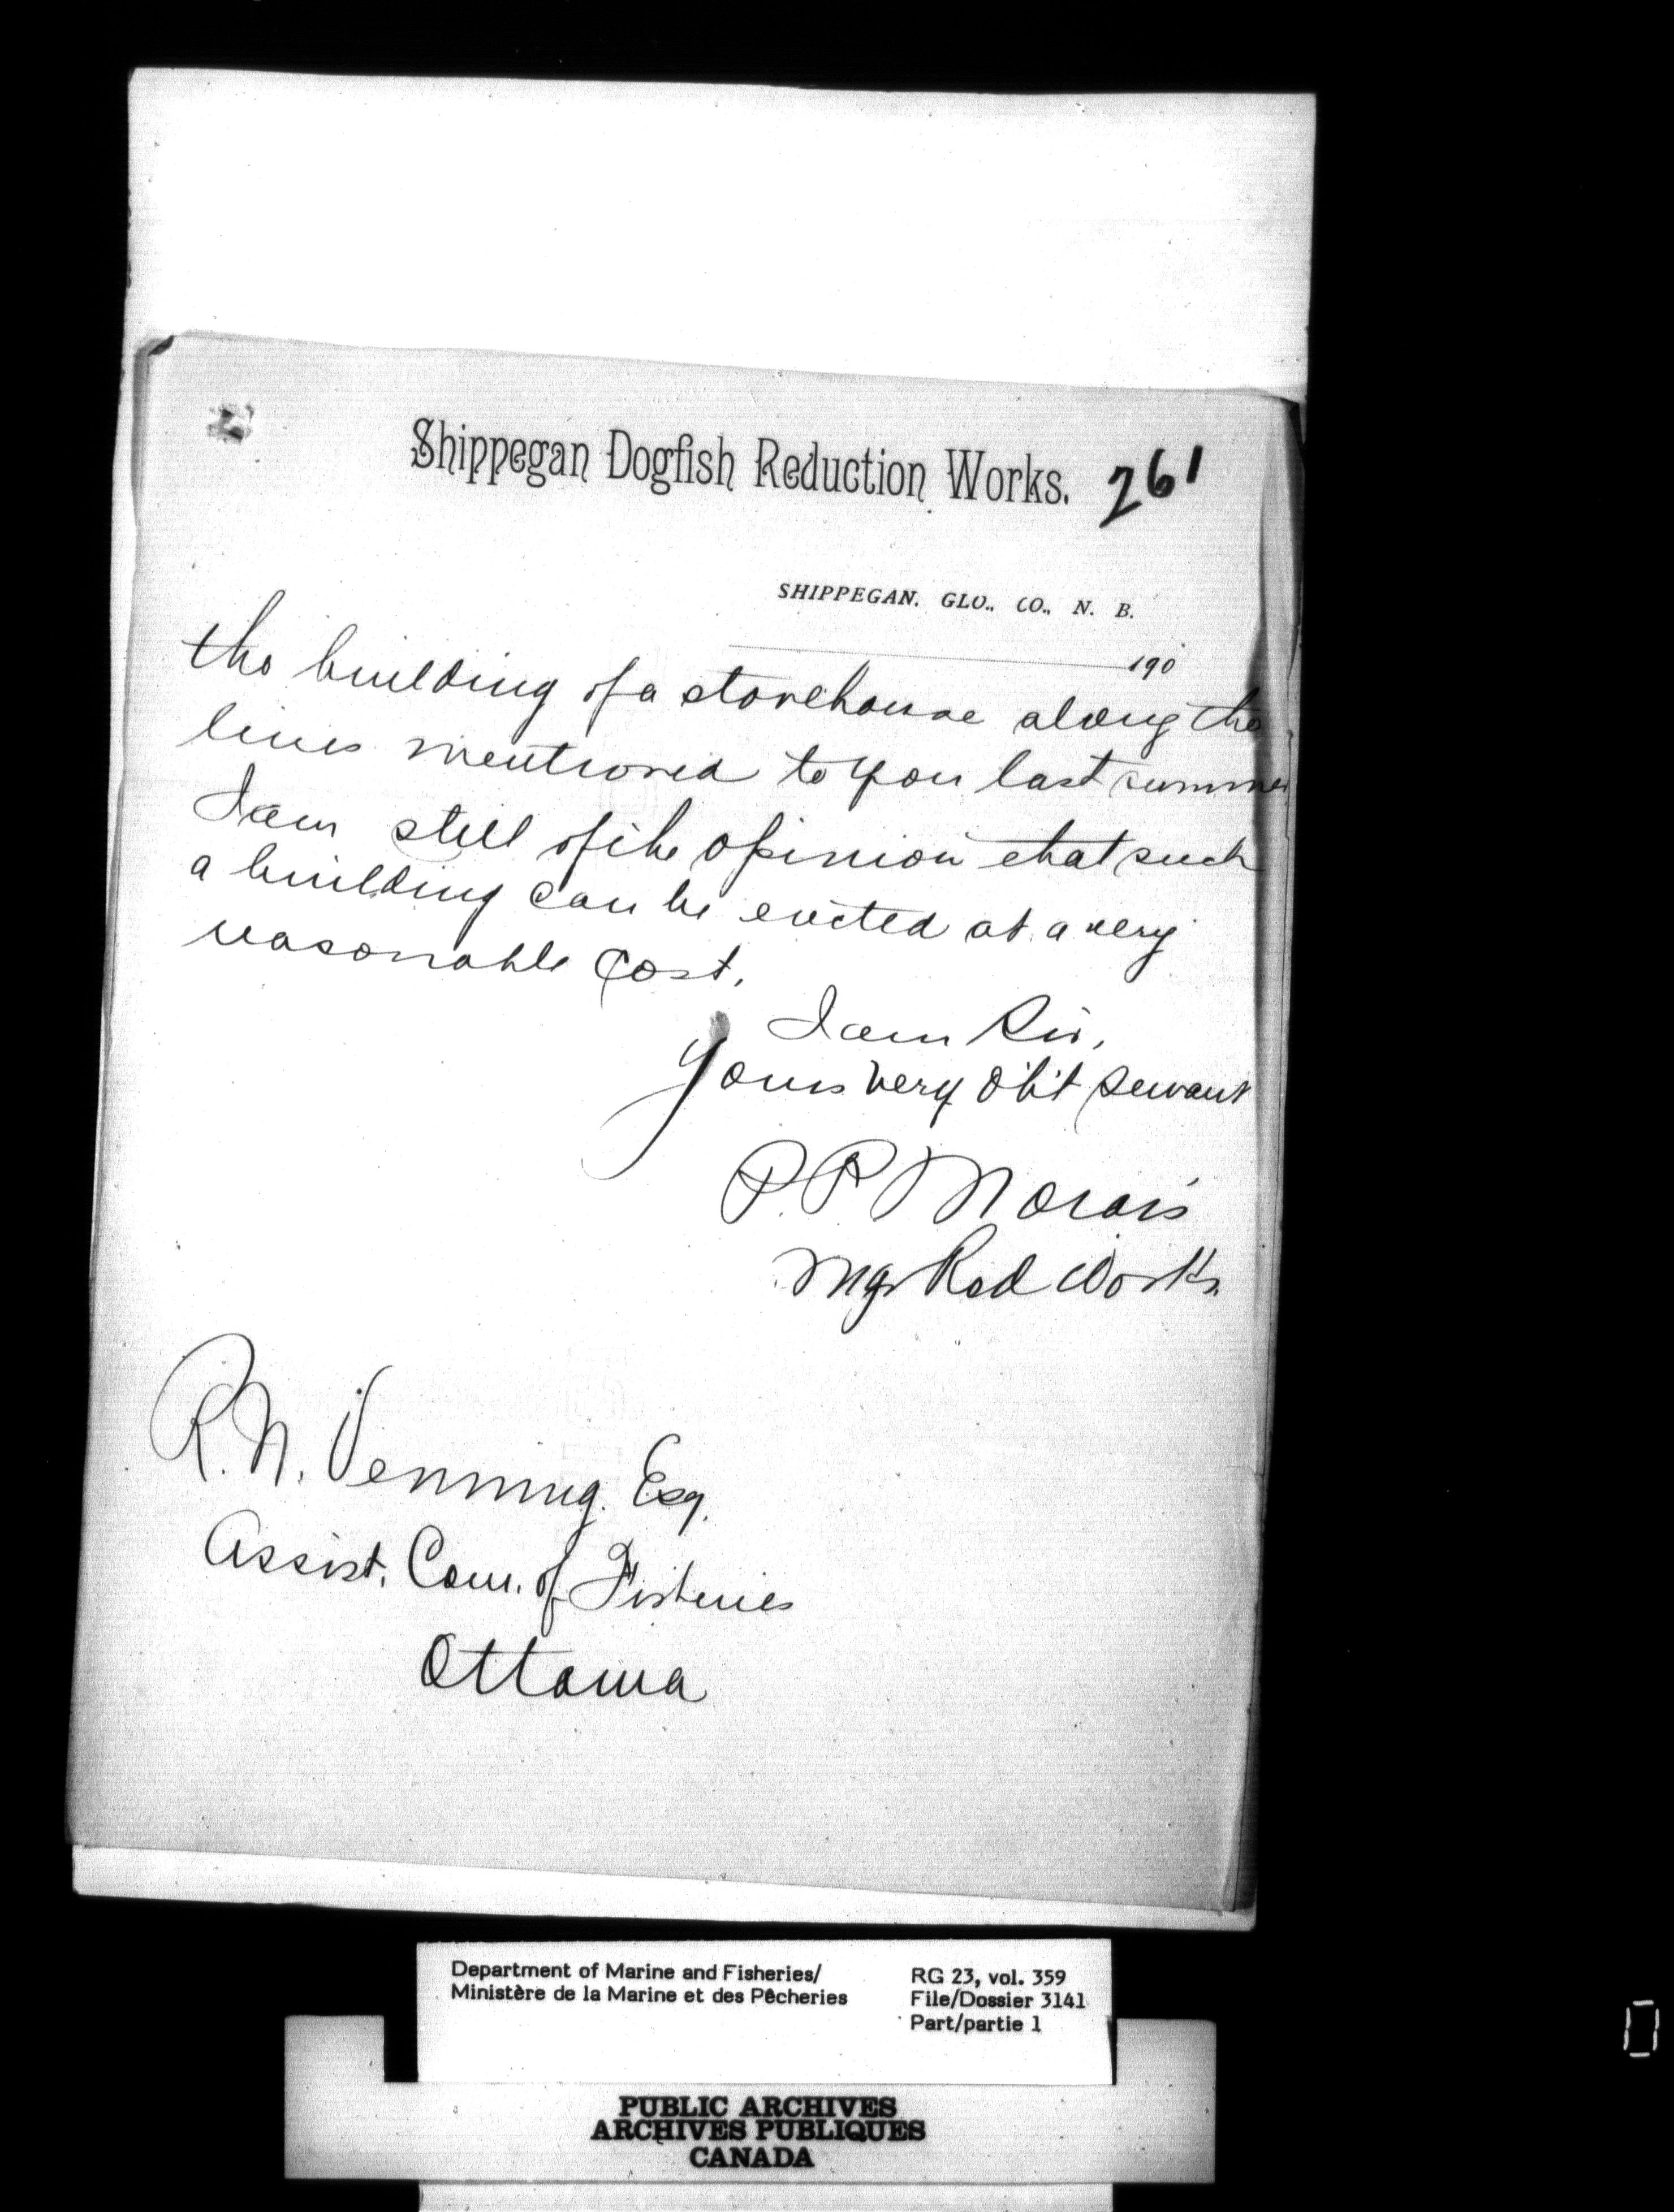 Shippegan Dogfish Reduction Works. 261
SHIPPEGAN. GLO., CO., N. B.
190
the building of a storehouse along the
lines mentioned to you last summer
I am still of the opinion that such
a building can be erected at a very
reasonable cost.
I am Sir,
Yours very ob't servant
P. P. Morais
Mgr Red Works.
R. N. Venning. Esq.
Assist. Com. of Fisheries
Ottawa
Department of Marine and Fisheries/
Ministère de la Marine et des Pêcheries
RG 23, vol. 359
File/Dossier 3141
Part/partie 1
PUBLIC ARCHIVES
ARCHIVES PUBLIQUES
CANADA